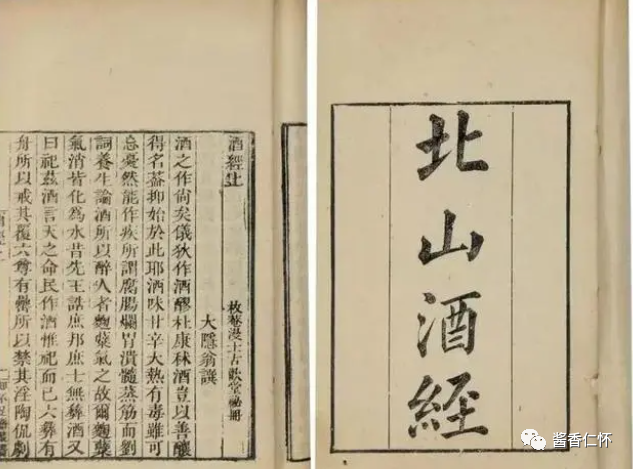 北山酒經
酒經上
枚菴漫士古歡堂祕冊
大隱翁譔
酒之作尚矣儀狄作酒醪杜康秫酒豈以善釀
得名蓋抑始於此耶酒味甘辛大熱有毒雖可
忘憂然能作疾所謂腐腸爛胃潰髓蒸筋而劉
詞養生論酒所以醉人者麴糵氣之故爾麴糵
氣消皆化爲水昔先王誥庶邦庶士無彝酒又
曰祀茲酒言天之命民作酒惟祀而已六彝有
舟所以戒其覆六尊有罍所以禁其淫陶侃劇
酱香仁怀